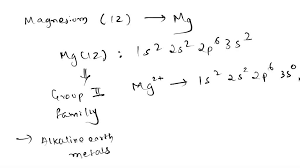 Magnesium (12) → Mg
Mg(12) : 1s² 2s² 2p⁶ 3s²
⇓
Group II
family
Mg²⁺ → 1s² 2s² 2p⁶ 3s⁰,
→ Alkaline earth
metals